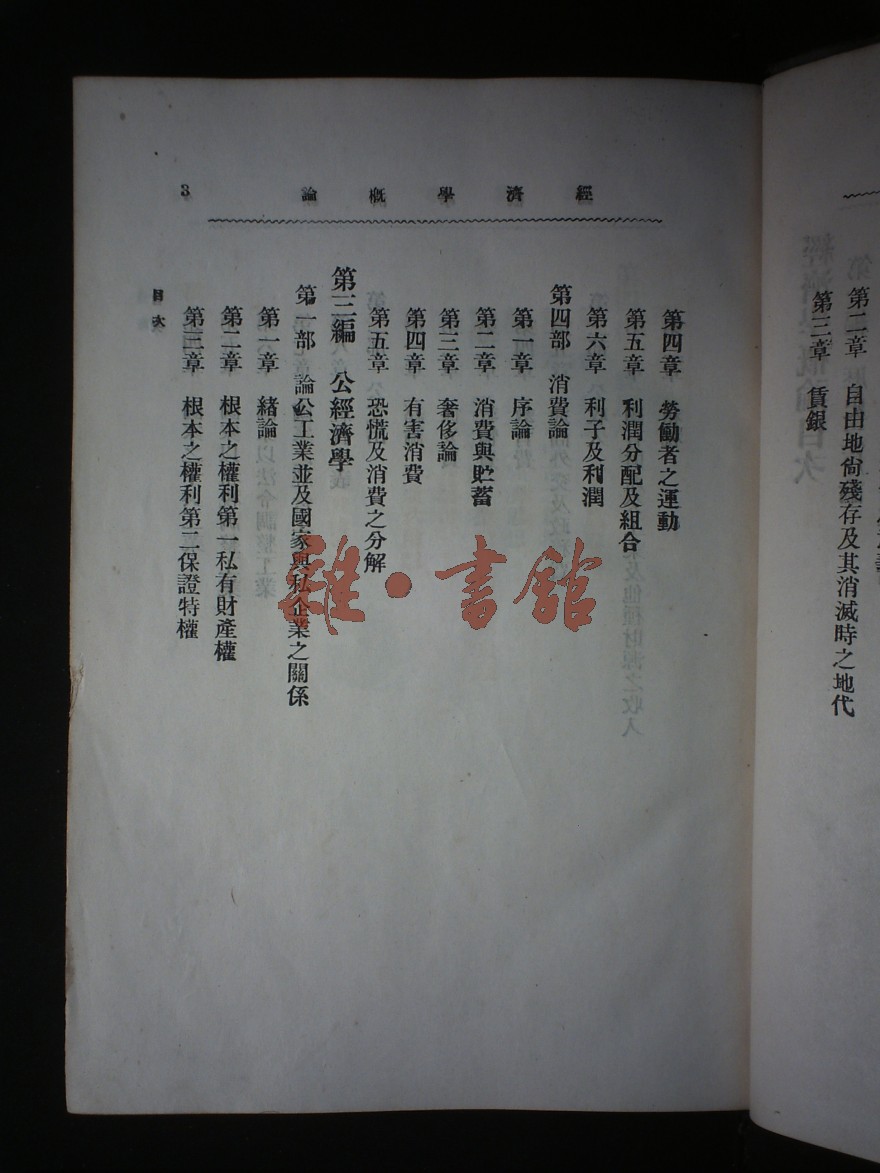 第二章 自由地尙殘存及其消滅時之地代
第三章 賃銀
經濟學概論
3
第四章 勞働者之運動
第五章 利潤分配及組合
第六章 利子及利潤
第四部 消費論
第一章 序論
第二章 消費與貯蓄
第三章 奢侈論
第四章 有害消費
第五章 恐慌及消費之分解
第三編 公經濟學
第一部 論公工業並及國家與私企業之關係
第一章 緒論
第二章 根本之權利第一私有財產權
第三章 根本之權利第二保證特權
目次
雜·書館